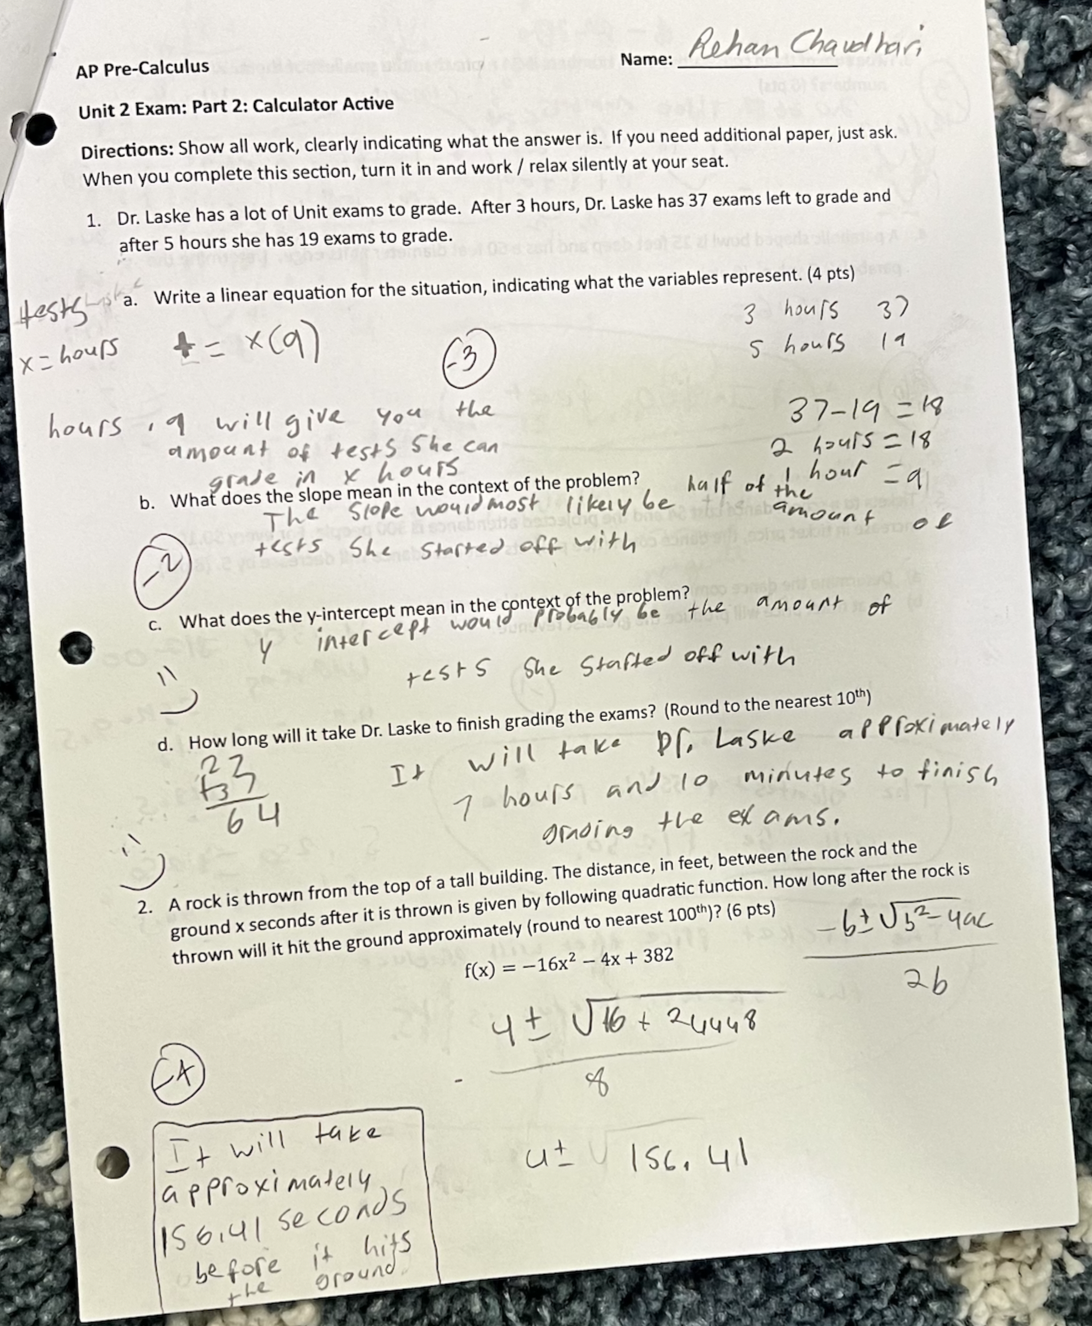 AP Pre-Calculus
Name: Rehan Chaudhari
Unit 2 Exam: Part 2: Calculator Active
Directions: Show all work, clearly indicating what the answer is. If you need additional paper, just ask.
When you complete this section, turn it in and work / relax silently at your seat.
1. Dr. Laske has a lot of Unit exams to grade. After 3 hours, Dr. Laske has 37 exams left to grade and
after 5 hours she has 19 exams to grade.
a. Write a linear equation for the situation, indicating what the variables represent. (4 pts)
tests
x = hours
t = x(9)
-3
3 hours 37
5 hours 19
37-19 = 18
2 hours = 18
1 hour = 9
hours, 9 will give you the
amount of tests she can
grade in x hours
b. What does the slope mean in the context of the problem?
The slope would most likely be half of the amount of
tests she started off with
-2
c. What does the y-intercept mean in the context of the problem?
y intercept would probably be the amount of
tests she started off with
d. How long will it take Dr. Laske to finish grading the exams? (Round to the nearest 10th)
27
+37
64
It will take Dr. Laske approximately
7 hours and 10 minutes to finish
grading the exams.
2. A rock is thrown from the top of a tall building. The distance, in feet, between the rock and the
ground x seconds after it is thrown is given by following quadratic function. How long after the rock is
thrown will it hit the ground approximately (round to nearest 100th)? (6 pts)
f(x) = −16x² − 4x + 382
-b±√b²-4ac
2b
4 ± √16 + 24448
8
-4
4± √156.41
It will take
approximately
156.41 seconds
before it hits
the ground.